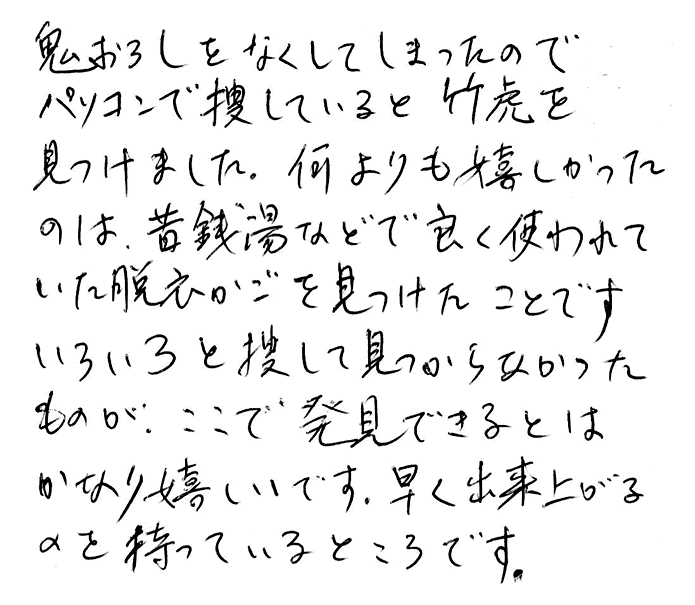 鬼おろしをなくしてしまったので
パソコンで捜していると竹虎を
見つけました。何よりも嬉しかった
のは、昔銭湯などで良く使われて
いた脱衣かごを見つけたことです
いろいろと捜して見つからなかった
ものが、ここで発見できるとは
かなり嬉しいです。早く出来上がる
のを待っているところです。